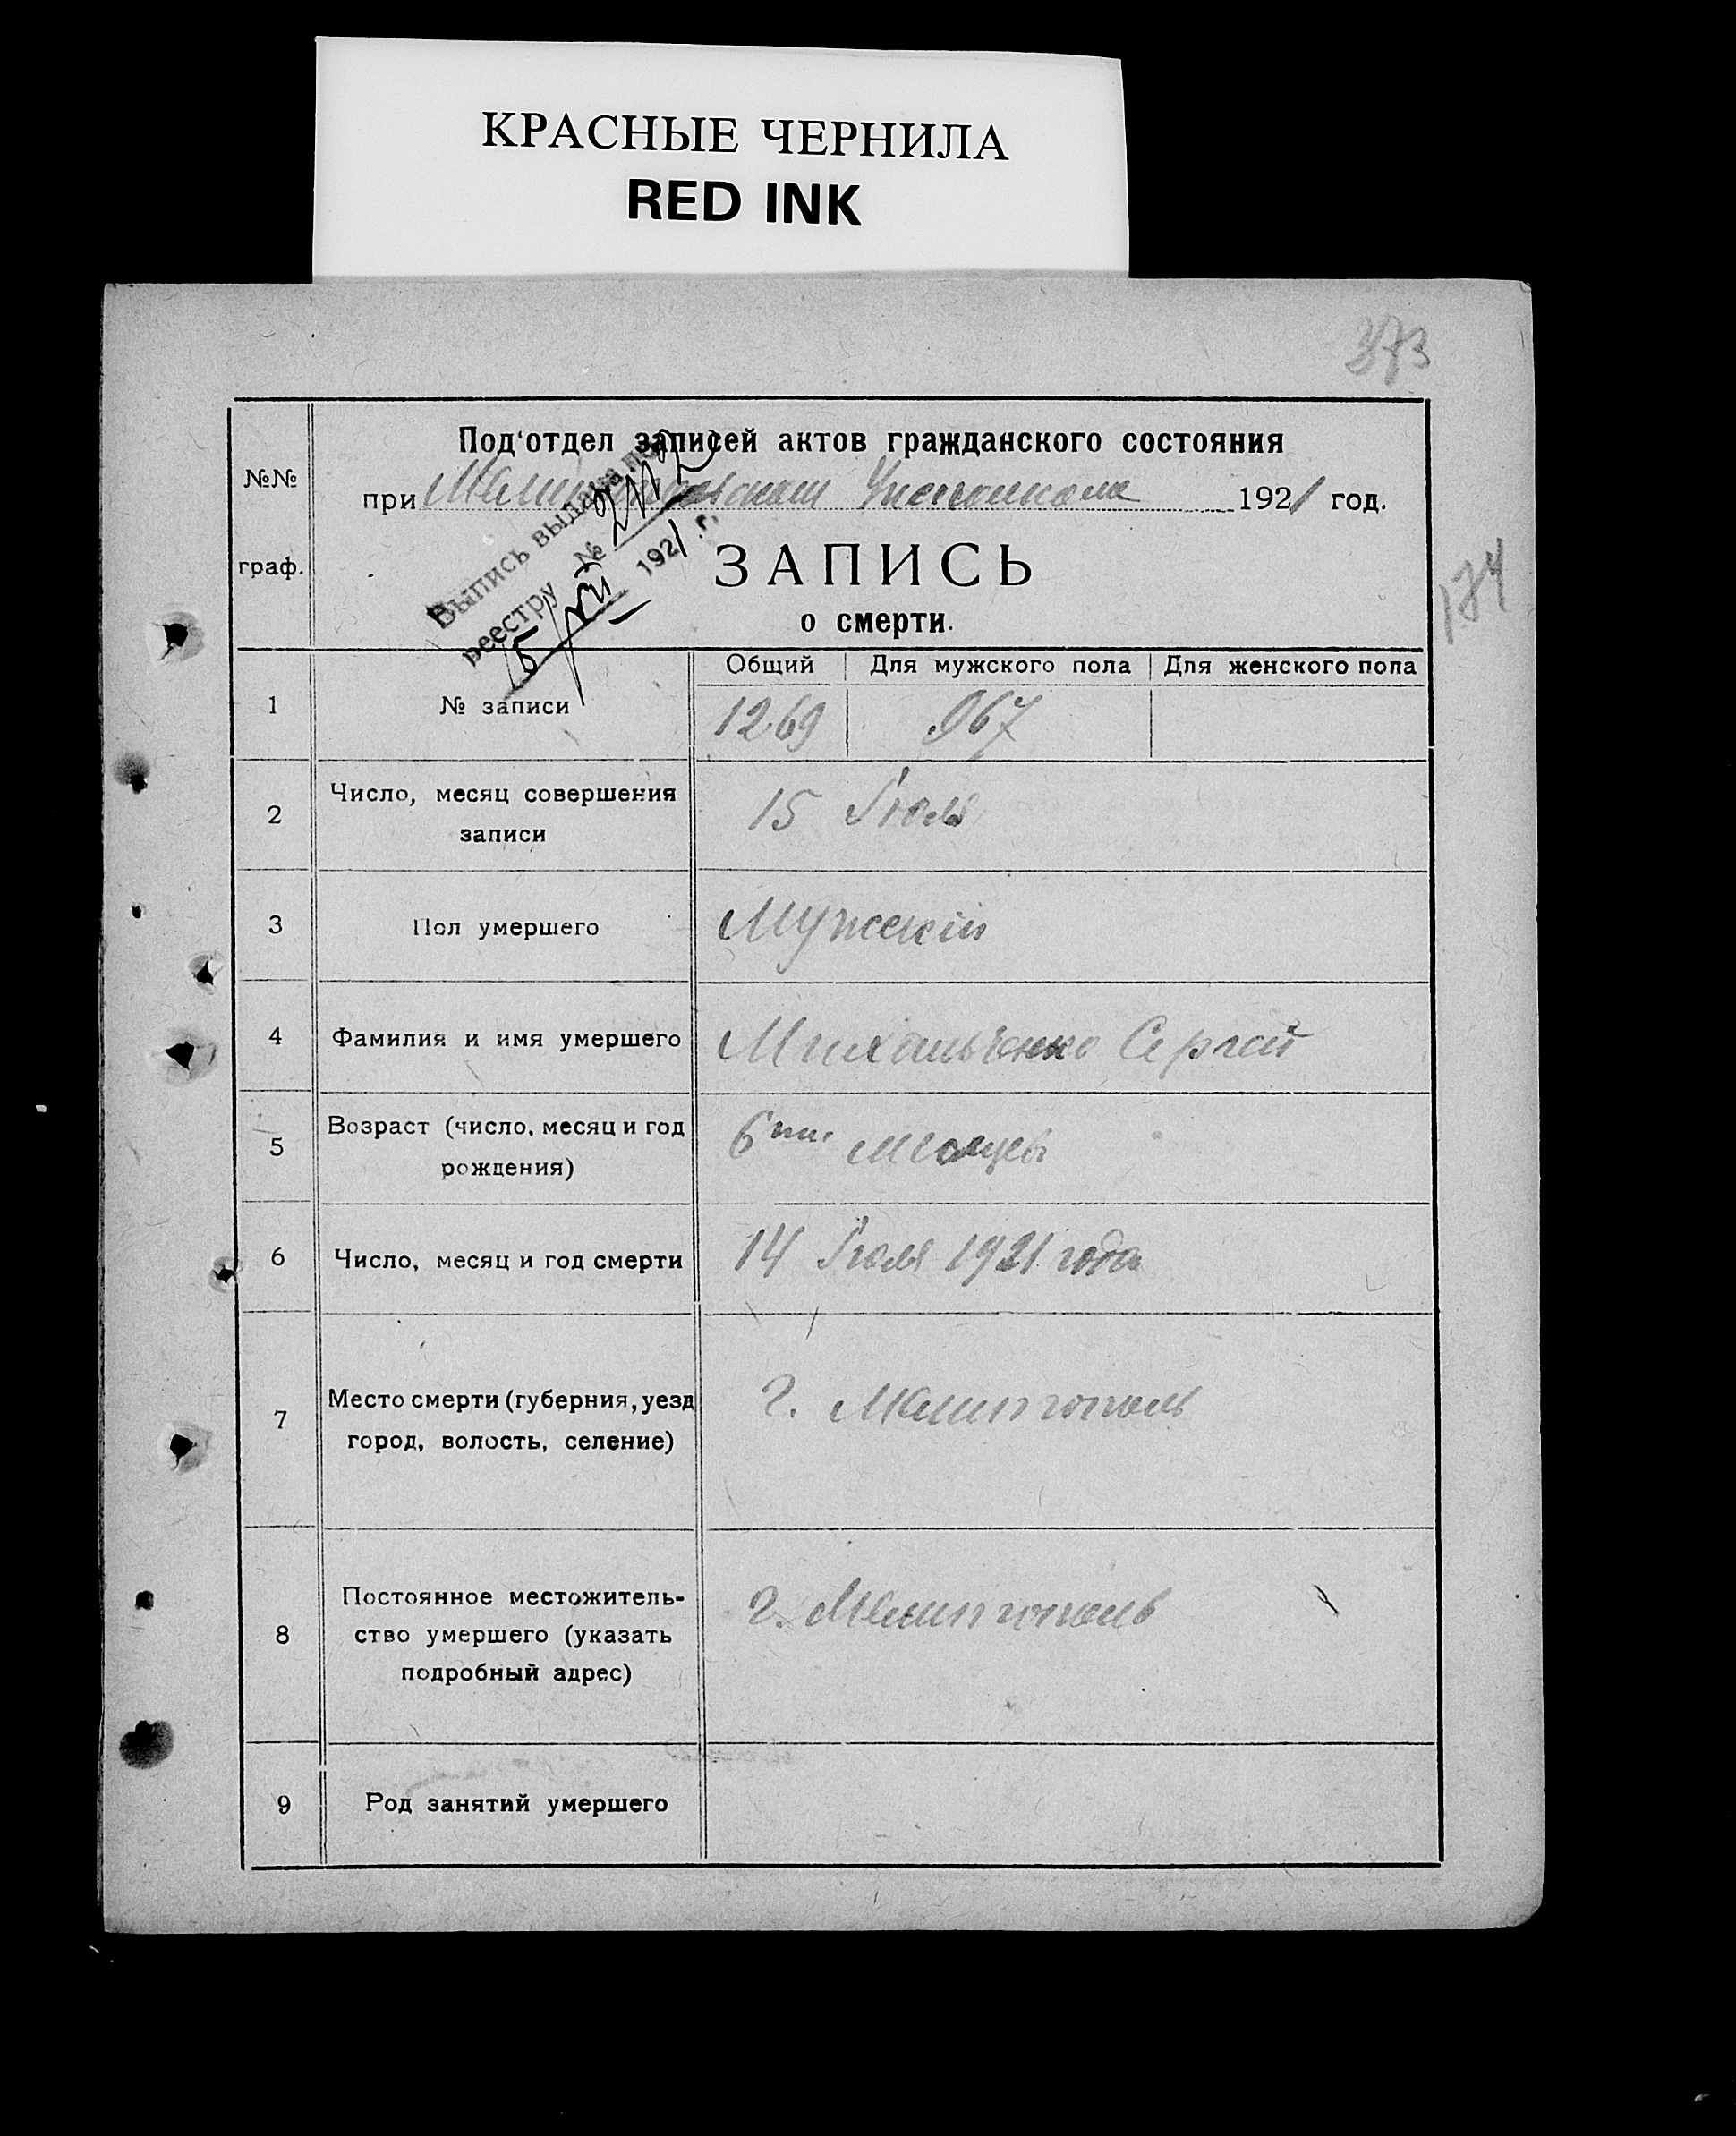 КРАСНЫЕ ЧЕРНИЛА
RED INK
373
Под'отдел записей актов гражданского состояния
№№
при Мелитопольском 1921 год.
граф.
ЗАПИСЬ
о смерти.
Выпись выдана по
реестру №
5/VII 1921 г.
174
Общий Для мужского пола Для женского пола
1 № записи 1269 967
2 Число, месяц совершения
записи
15 Iюля
3 Пол умершего Мужскiй
4 Фамилия и имя умершего Михальченко Сергей
5 Возраст (число, месяц и год
рождения)
6ти месяцев
6 Число, месяц и год смерти 14 Iюля 1921 года
7 Место смерти (губерния, уезд
город, волость, селение)
г. Мелитополь
8 Постоянное местожитель-
ство умершего (указать
подробный адрес)
г. Мелитополь
9 Род занятий умершего